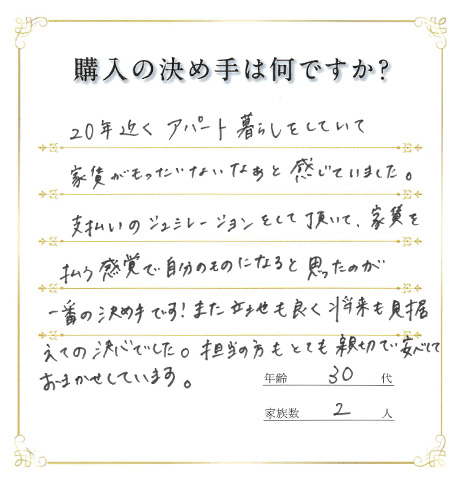 購入の決め手は何ですか?
20年近く アパート暮らしをしていて
家賃がもったいないなぁと感じていました。
支払いのシュミレーションをして頂いて、家賃を
払う感覚で自分のものになると思ったのが
一番の決め手です!また立地も良く将来も見据
えての決心でした。担当の方もとても親切で安心して
おまかせしています。
年齢 30 代
家族数 2 人